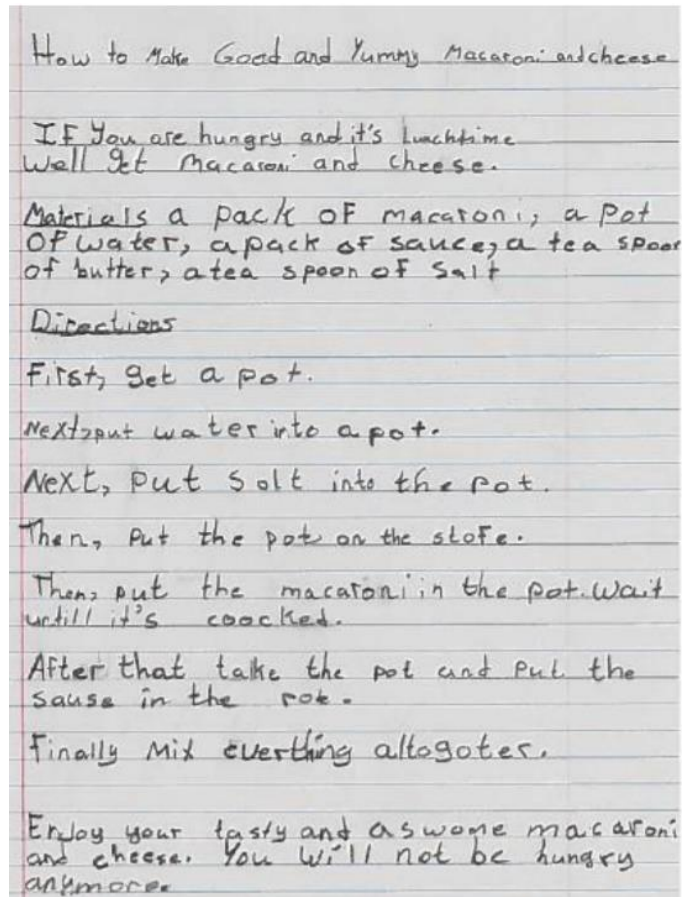 How to Make Good and Yummy Macaroni and cheese
If You are hungry and it's lunchtime
Well get macaroni and cheese.
Materials a pack of macaroni, a pot
of water, a pack of sauce, a tea spoon
of butter, a tea spoon of salt
Directions
First, get a pot.
Next, put water into a pot.
Next, put salt into the pot.
Then, put the pot on the stofe.
Then, put the macaroni in the pot. Wait
untill it's coocked.
After that take the pot and put the
sause in the pot.
Finally mix everthing altogoter.
Enjoy your tasty and aswome macaroni
and cheese. You will not be hungry
anymore.